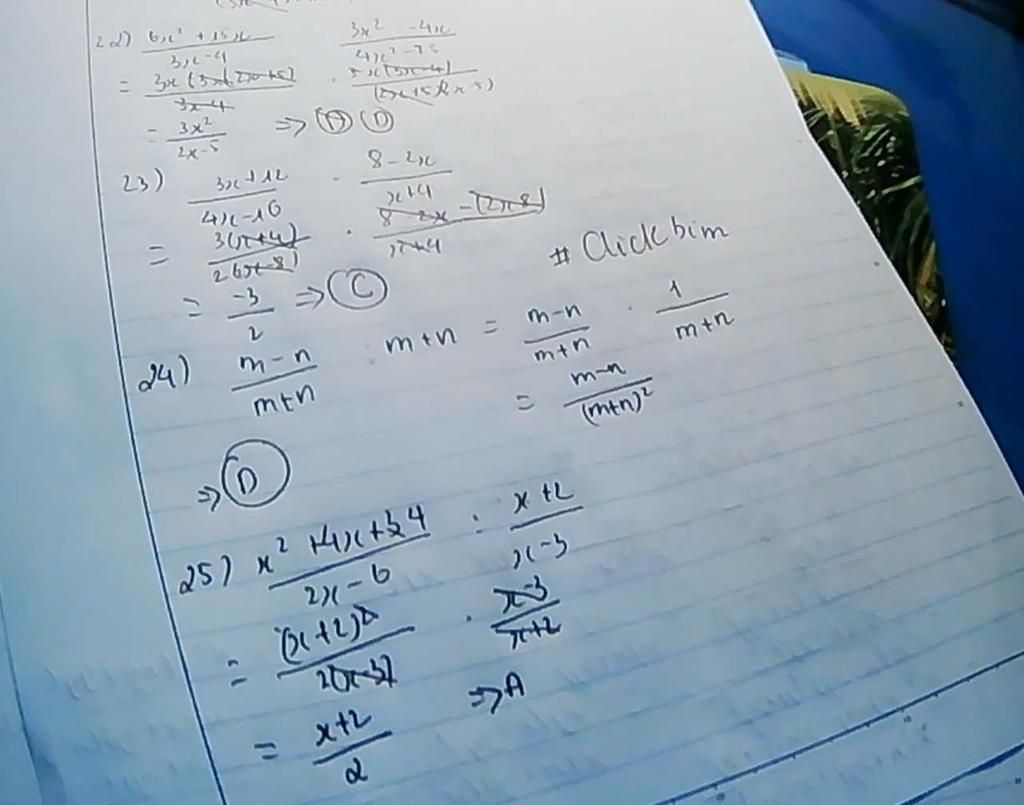 22) (6x² + 15x)/(3x-4) · (3x² - 4x)/(4x² - 25)
= 3x(2x+5)/(3x-4) · x(3x-4)/((2x+5)(2x-5))
= 3x²/(2x-5) => D
23) (3x+12)/(4x-16) · (8-2x)/(x+4)
= 3(x+4)/2(2x-8) · -(2x-8)/(x+4)
= -3/2 => C
# Clickbim
24) (m-n)/(m+n) : m+n = (m-n)/(m+n) · 1/(m+n)
= (m-n)/(m+n)²
=> D
25) (x² + 4x + 4)/(2x-6) : (x+2)/(x-3)
= (x+2)²/2(x-3) · (x-3)/(x+2)
= (x+2)/2 => A